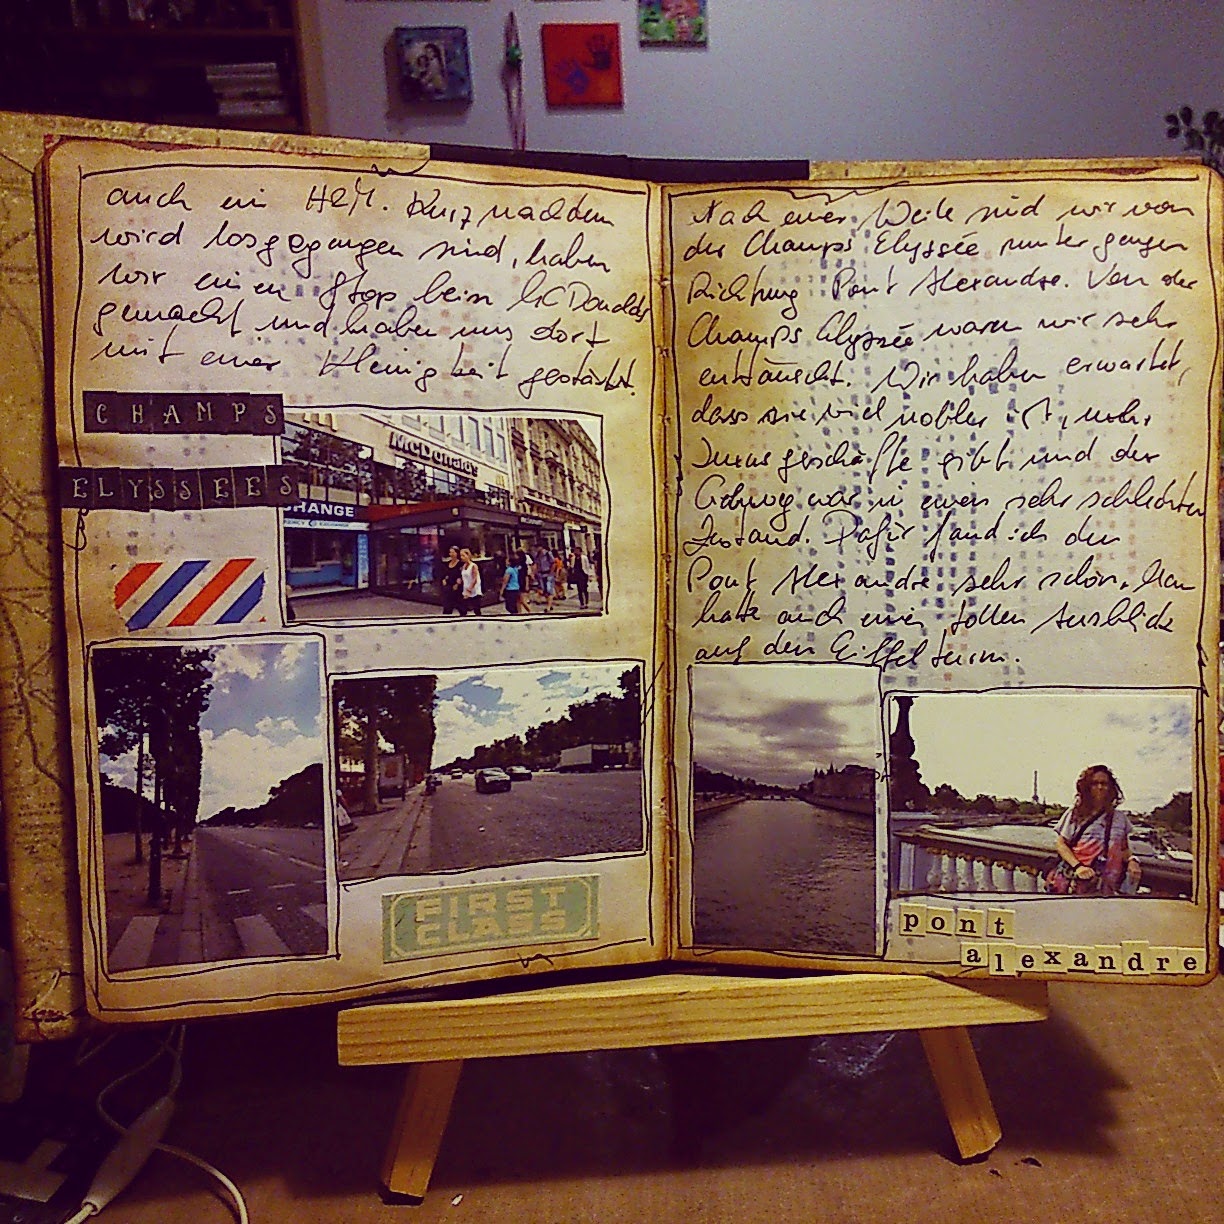 auch ein H&M. Kurz nachdem
wird losgegangen sind, haben
wir einen Stop beim McDonalds
gemacht und haben uns dort
mit einer Kleinigkeit gestärkt.
CHAMPS
ELYSSEES
McDonald's
CHANGE
FIRST
CLASS
Nach einer Weile sind wir von
der Champs Elyssée runter gangen
Richtung Pont Alexandre. Von der
Champs Elyssée waren wir sehr
enttäuscht. Wir haben erwartet,
dass sie viel nobler ist, mehr
Luxusgeschäfte gibt und der
Gehweg war in einem sehr schlechten
Zustand. Dafür fand ich den
Pont Alexandre sehr schön. Man
hatte auch einen tollen Ausblick
auf den Eiffelturm.
pont
alexandre